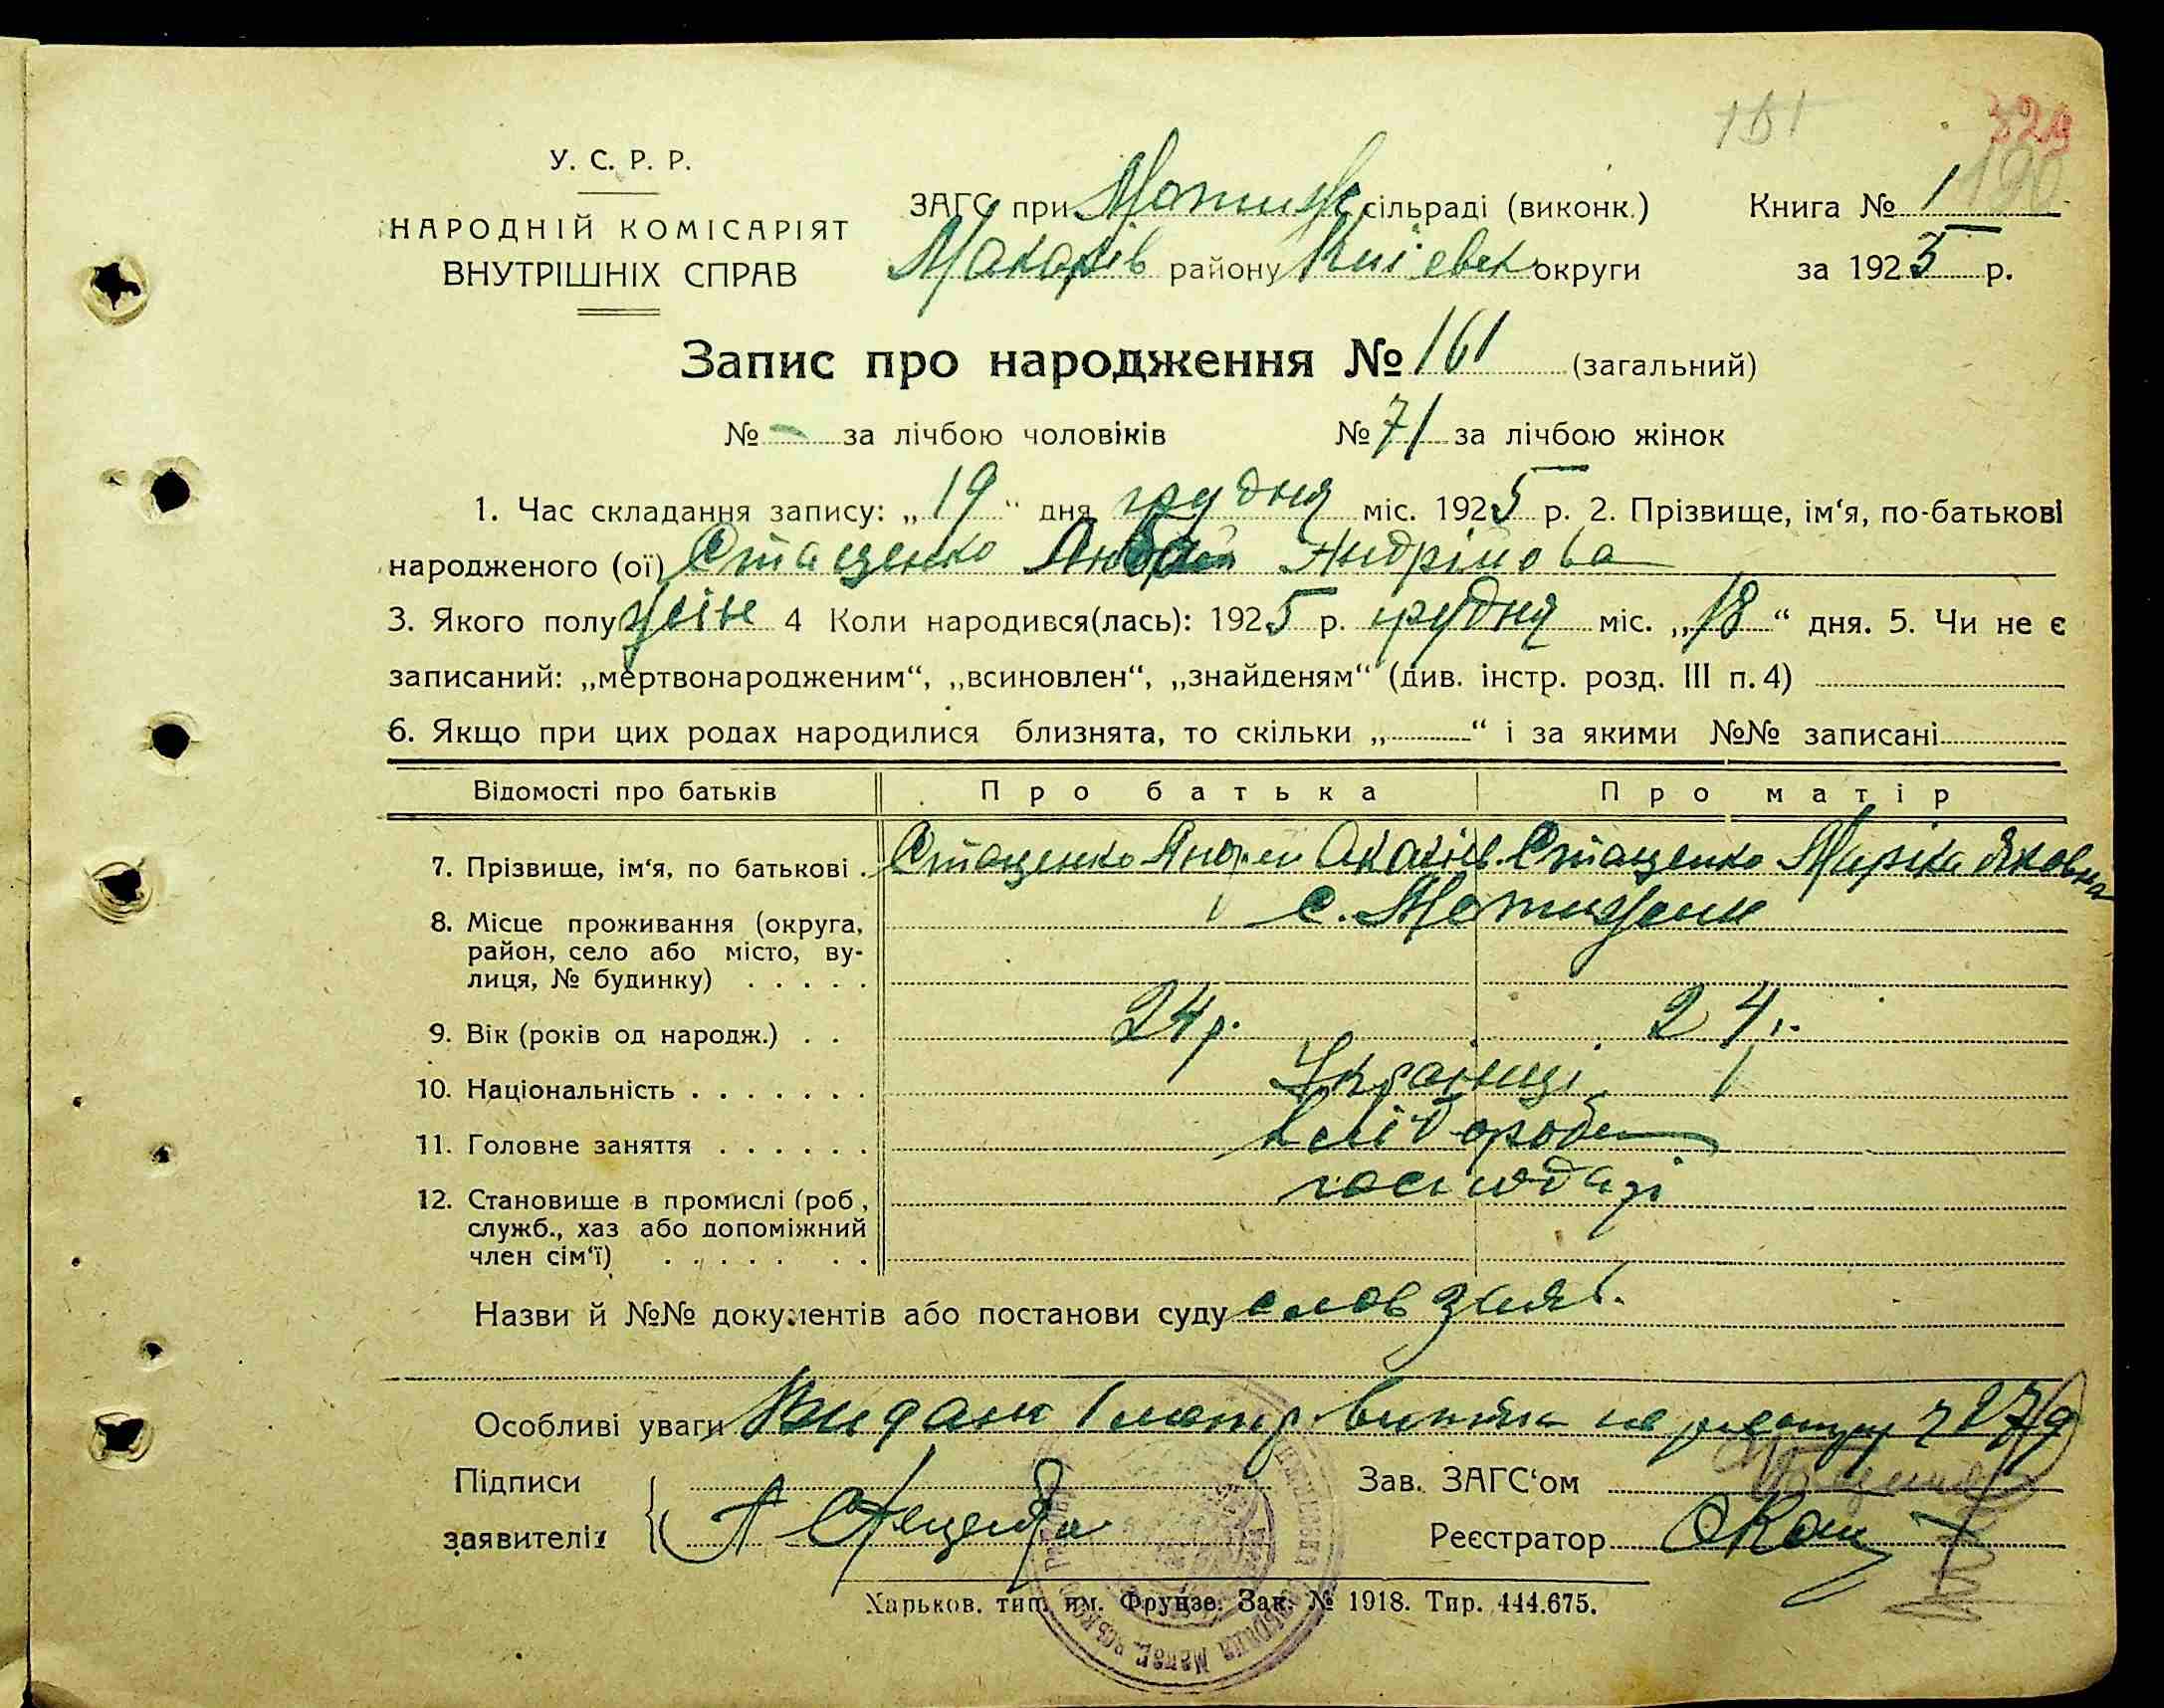 151
324
190
У. С. Р. Р.
НАРОДНІЙ КОМІСАРІЯТ
ВНУТРІШНІХ СПРАВ
ЗАГС при Мотиж сільраді (виконк.)
Макарів району Київськ округи
Книга № 1
за 1925 р.
Запис про народження № 161 (загальний)
№ - за лічбою чоловіків № 71 за лічбою жінок
1. Час складання запису: „19“ дня грудня міс. 1925 р. 2. Прізвище, ім‘я, по-батькові
народженого (ої) Стаценко Андрійова
3. Якого полу жін 4 Коли народився(лась): 1925 р. грудня міс. „18“ дня. 5. Чи не є
записаний: „мертвонародженим“, „всиновлен“, „знайденям“ (див. інстр. розд. III п. 4)
6. Якщо при цих родах народилися близнята, то скільки „ “ і за якими №№ записані
Відомості про батьків Про батька Про матір
7. Прізвище, ім‘я, по батькові . Стаценко Андрей Акакіїв. Стаценко Маріка Яковна
8. Місце проживання (округа, с. Мотижени
район, село або місто, ву-
лиця, № будинку) . . . . .
9. Вік (років од народж.) . . 24 р. 24 р.
10. Національність . . . . . . . Українці
11. Головне заняття . . . . . . хлібороби
12. Становище в промислі (роб., господарі
служб., хаз або допоміжний
член сім‘ї) . . . . . . .
Назви й №№ документів або постанови суду слов заяв.
Особливі уваги Видано 1 метр. витяг на
Підписи
заявителів
Зав. ЗАГС‘ом
Реєстратор
Харьков. тип. им. Фрунзе. Зак. № 1918. Тир. 444.675.